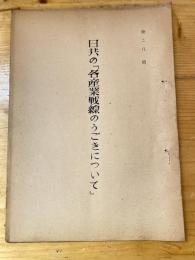 日共の「各産業戦線のうごきについて」